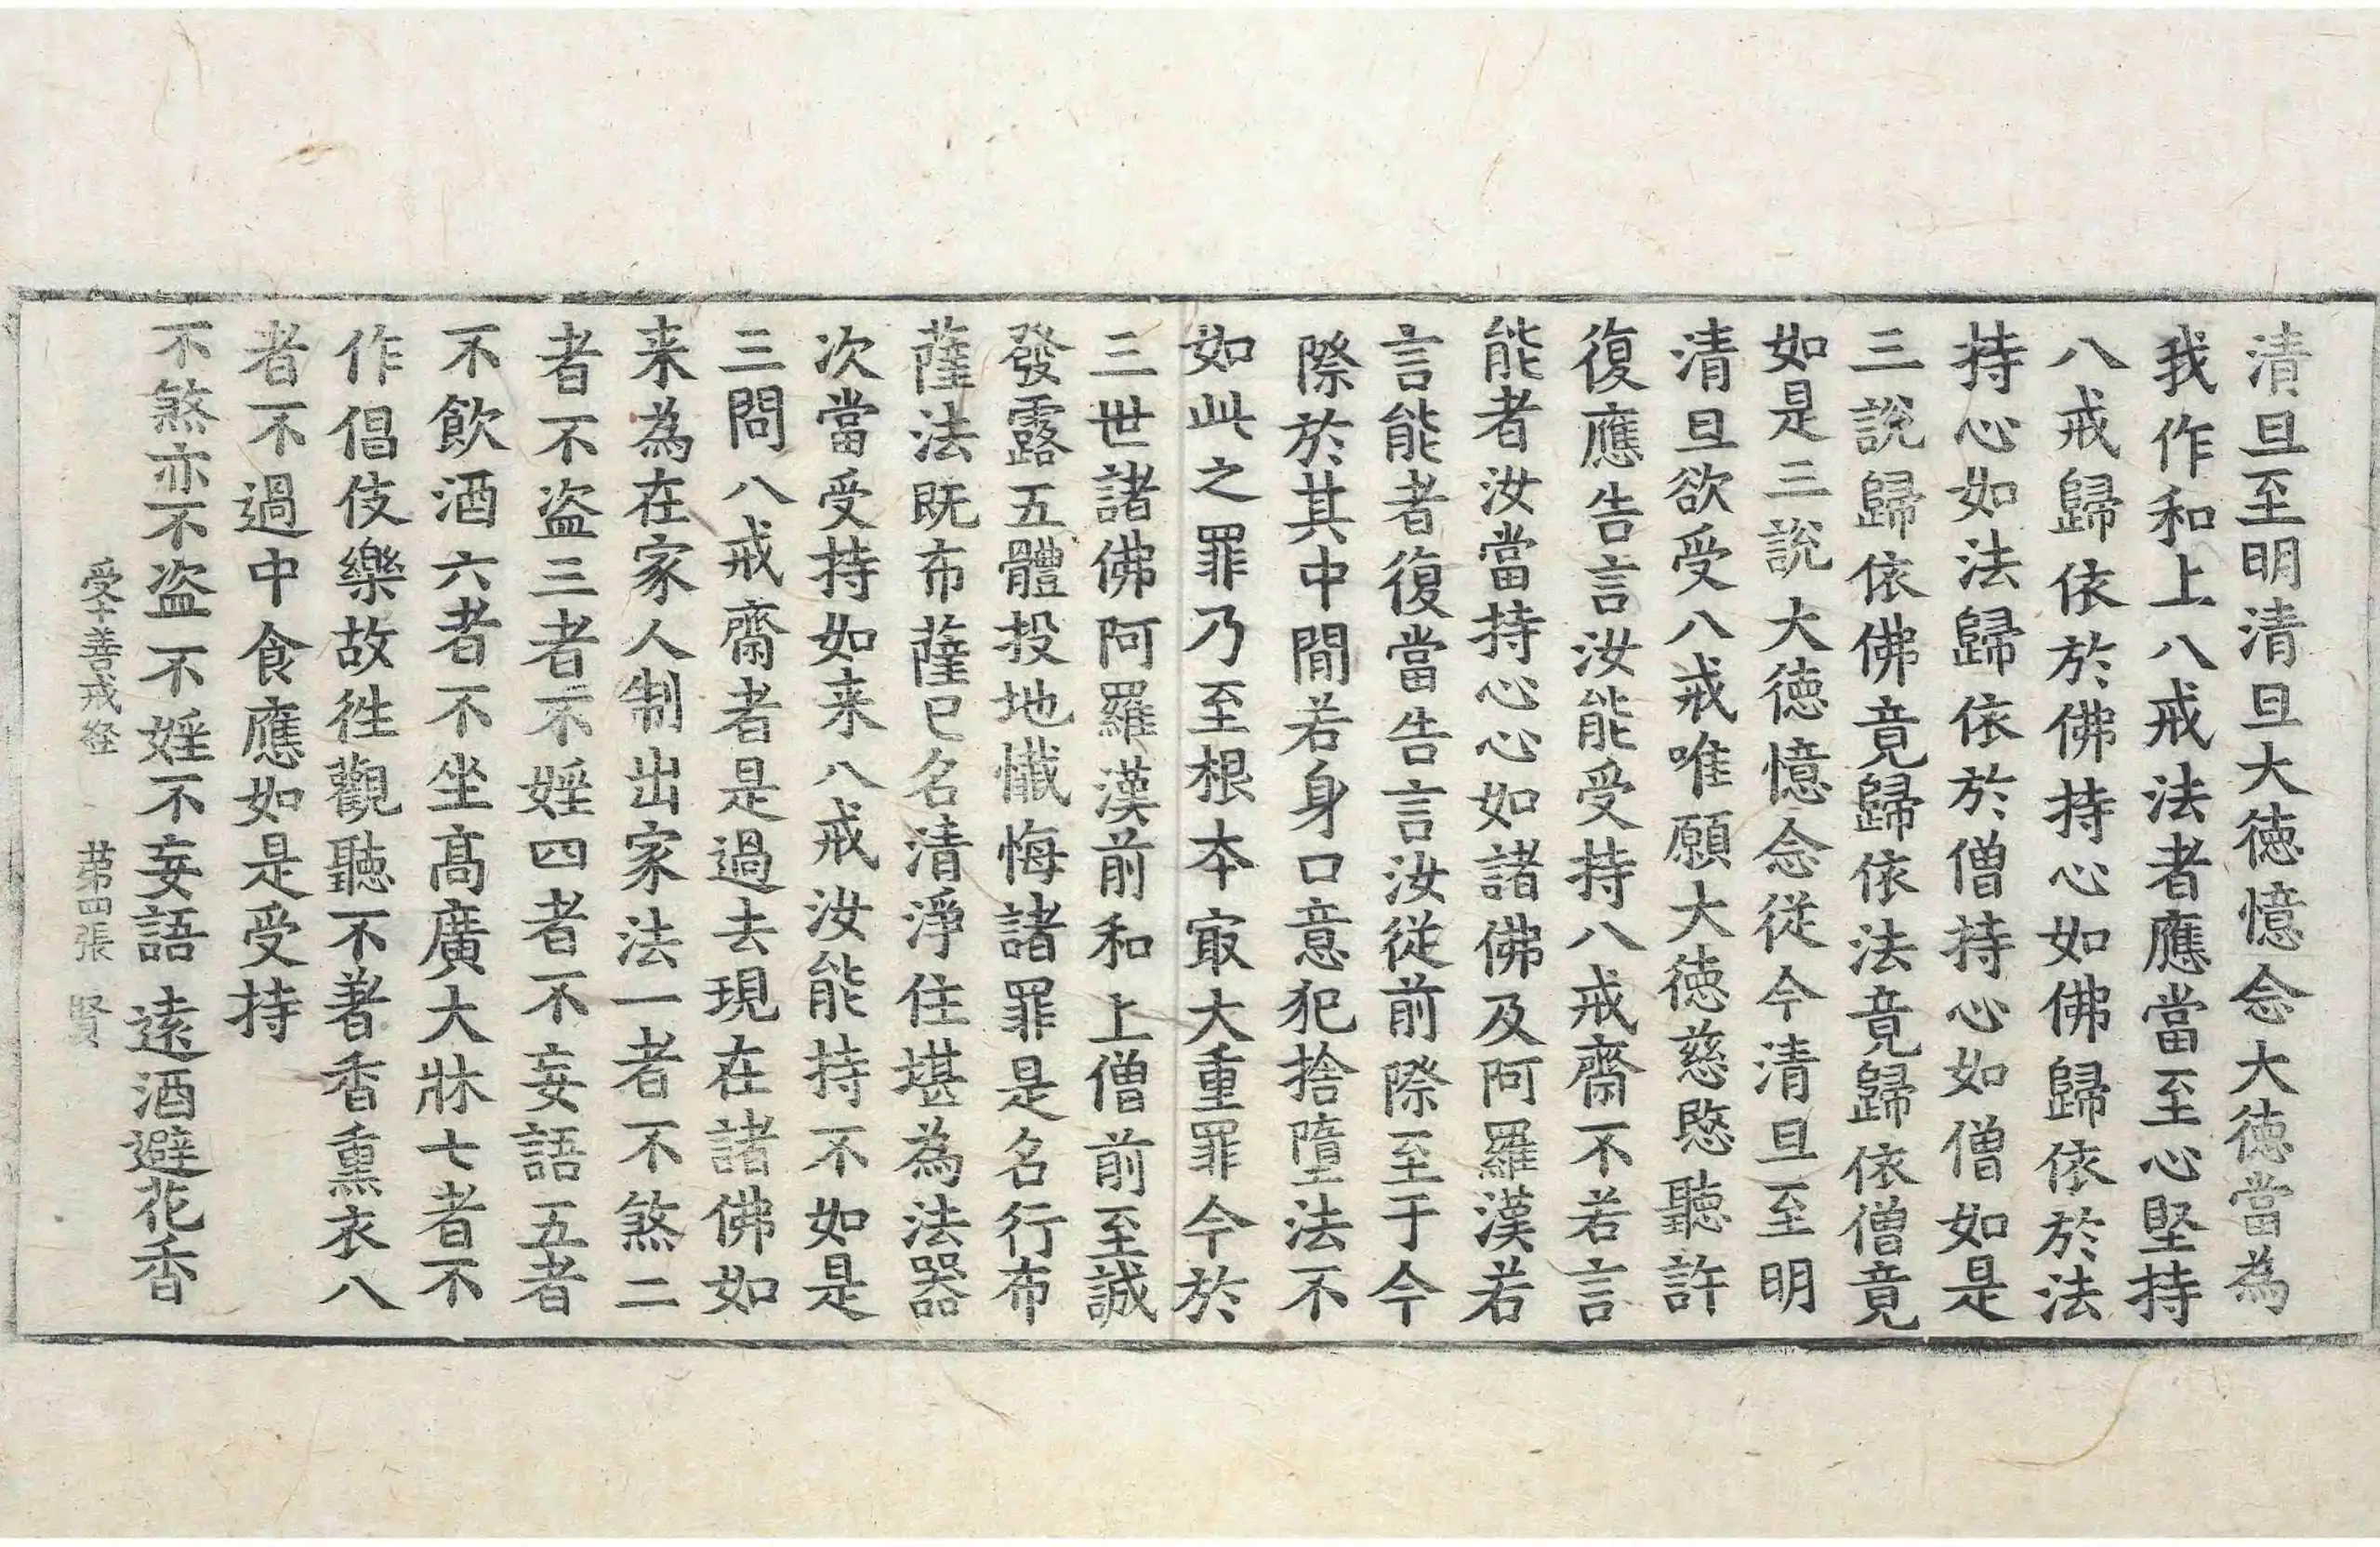 清旦至明清旦大徳憶念大徳當為
我作和上八戒法者應當至心堅持
八戒歸依於佛持心如佛歸依於法
持心如法歸依於僧持心如僧如是
三說歸依佛竟歸依法竟歸依僧竟
如是三說大徳憶念從今清旦至明
清旦欲受八戒唯願大徳慈愍聽許
復應告言汝能受持八戒齋不若言
能者汝當持心心如諸佛及阿羅漢若
言能者復當告言汝從前際至于今
際於其中閒若身口意犯捨墮法不
如此之罪乃至根本㝡大重罪今於
三世諸佛阿羅漢前和上僧前至誠
發露五體投地懺悔諸罪是名行布
薩法既布薩已名清淨住堪為法器
次當受持如来八戒汝能持不如是
三問八戒齋者是過去現在諸佛如
来為在家人制出家法一者不煞二
者不盗三者不婬四者不妄語五者
不飲酒六者不坐高廣大牀七者不
作倡伎樂故徃觀聽不著香熏衣八
者不過中食應如是受持
不煞亦不盗不婬不妄語逺酒避花香
受十善戒経 苐四張 賢